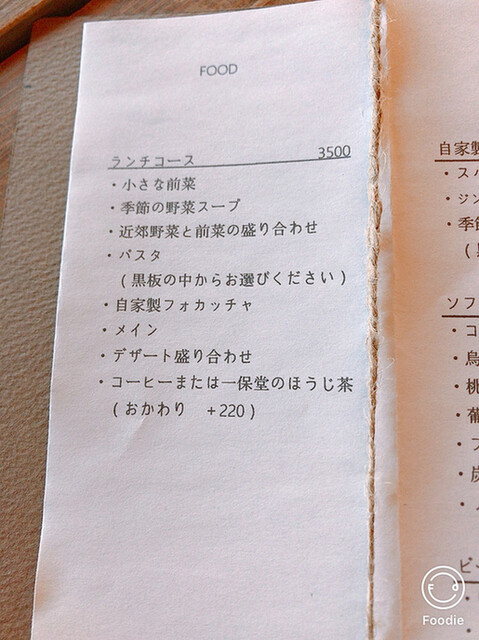 FOOD
ランチコース 3500
・小さな前菜
・季節の野菜スープ
・近郊野菜と前菜の盛り合わせ
・パスタ
(黒板の中からお選びください)
・自家製フォカッチャ
・メイン
・デザート盛り合わせ
・コーヒーまたは一保堂のほうじ茶
(おかわり +220)
自家製
・ス
・ジン
・季節
(
ソフ
・コ
・烏
・桃
・葡
・
・炭
・
ビー
Foodie